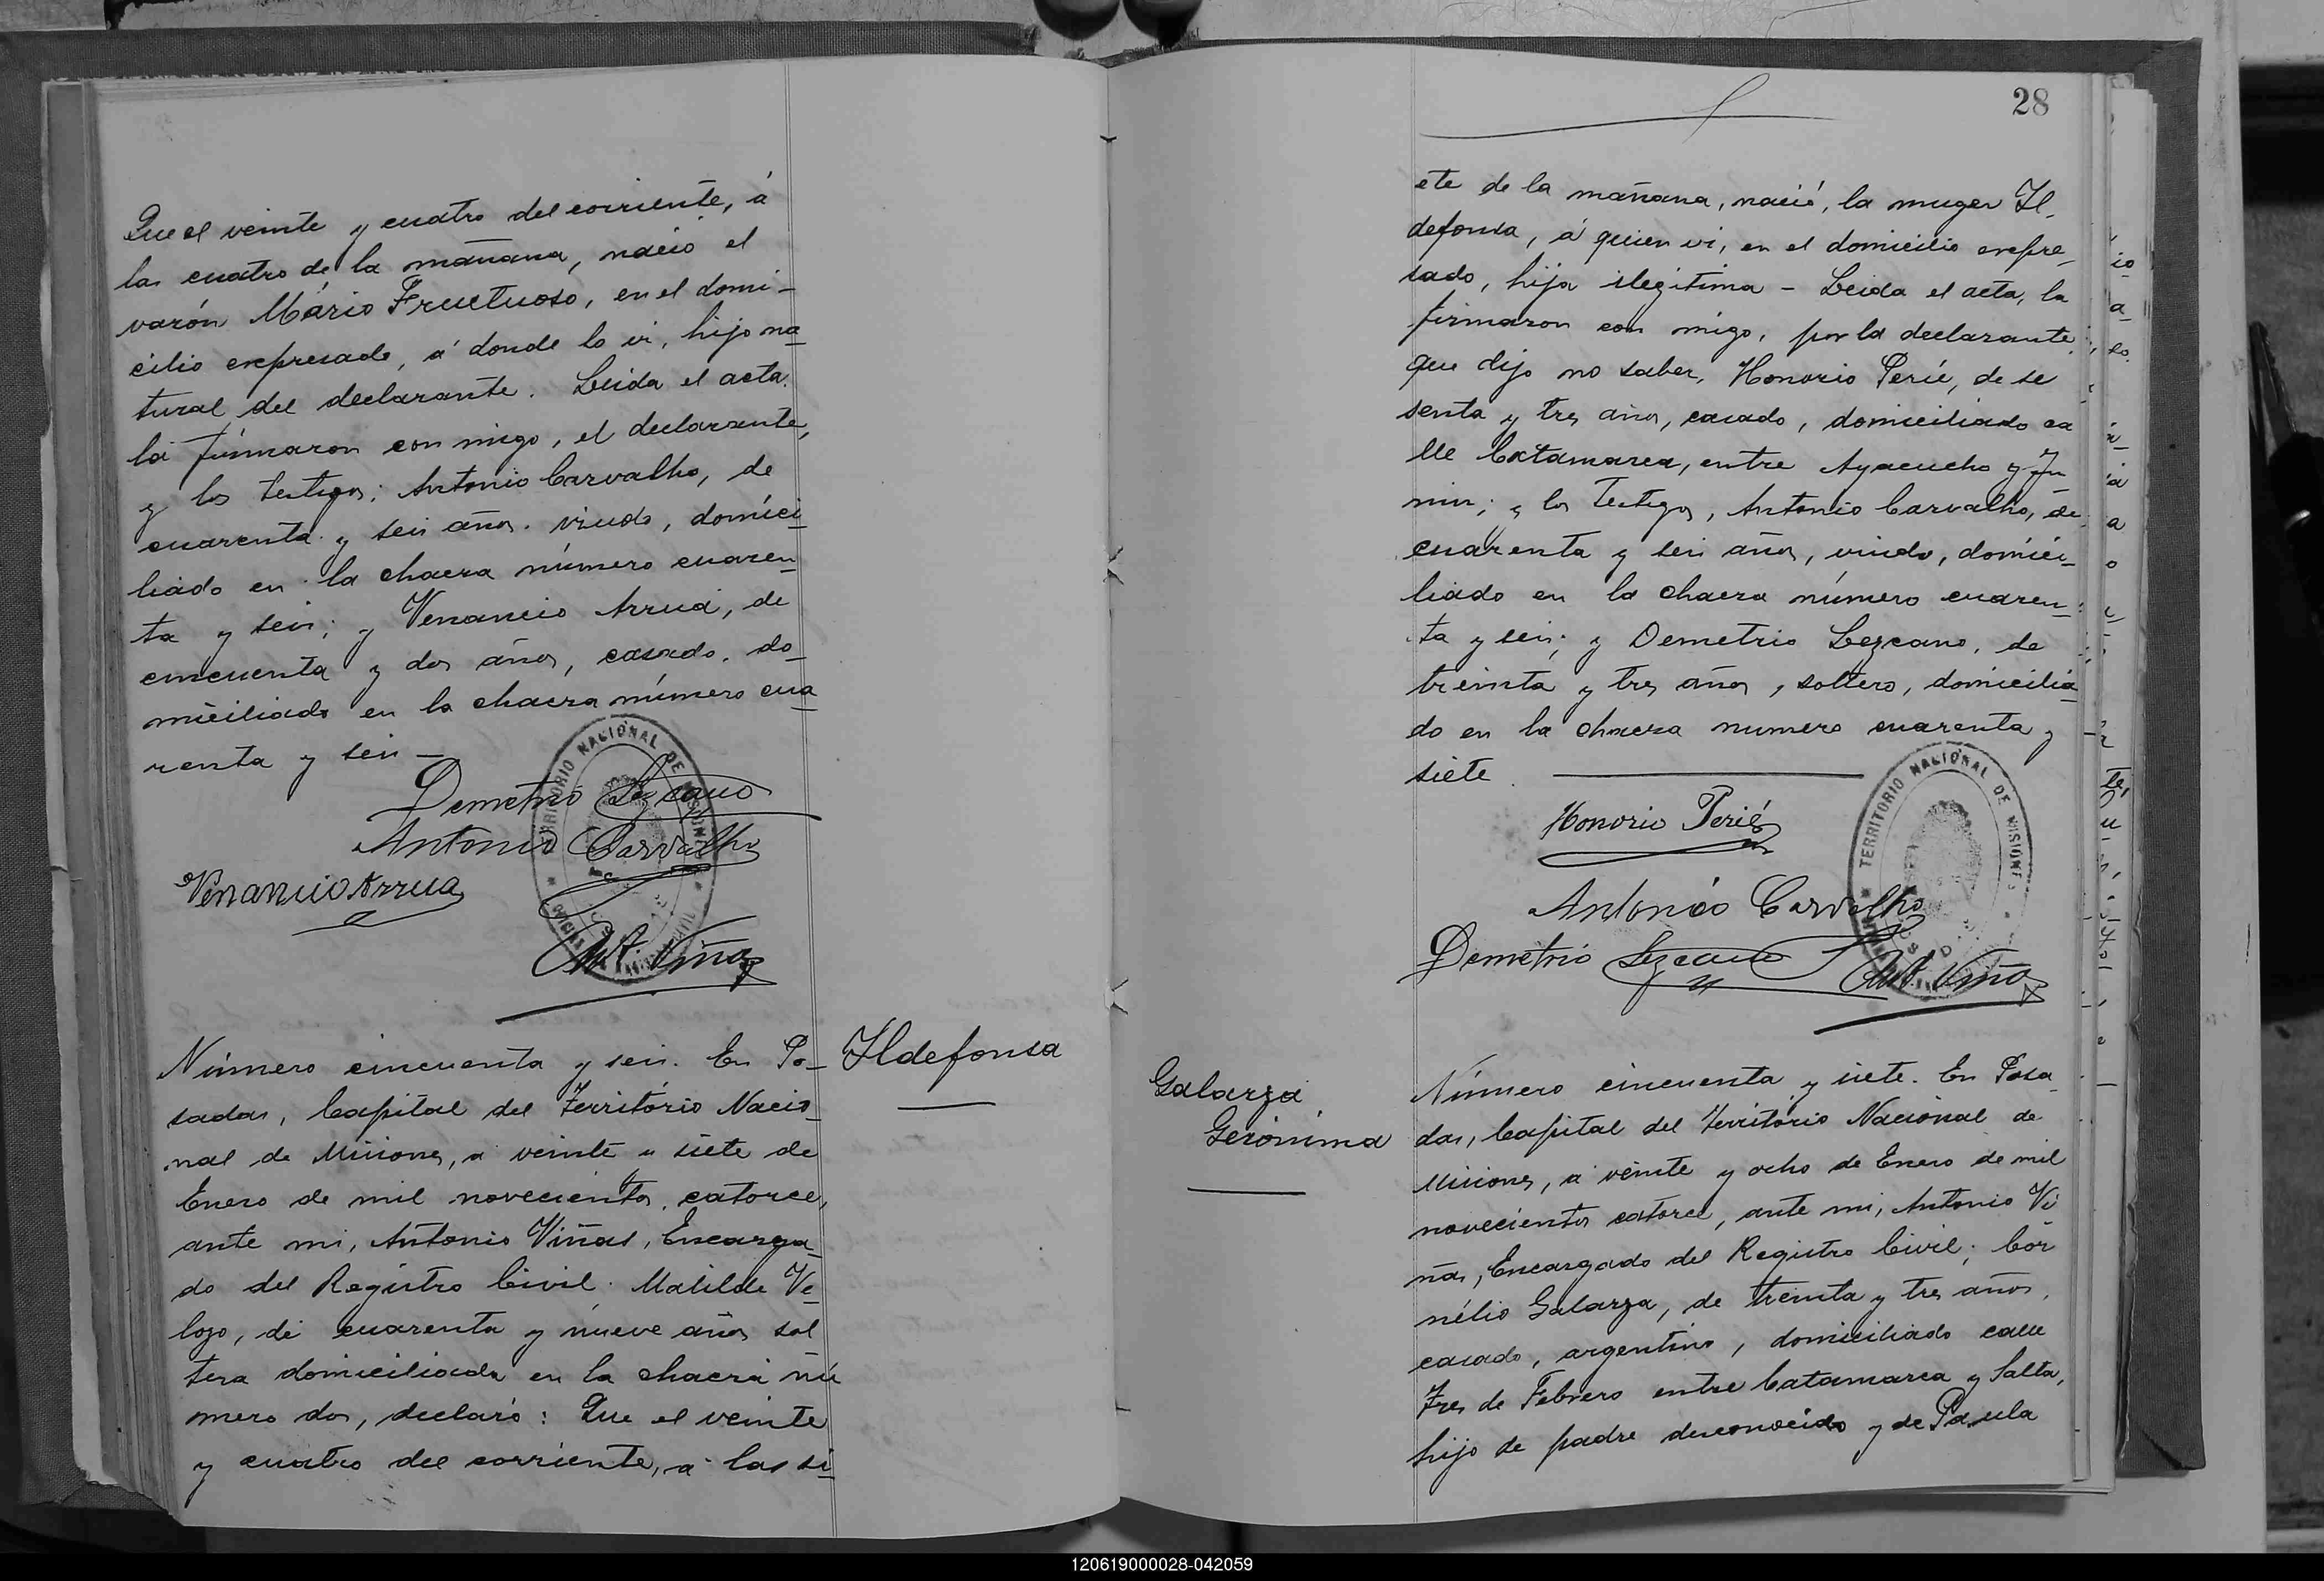 Que el veinte y cuatro del corriente, á
las cuatro de la mañana, nació el
varón Mário Fructuoso, en el domi-
cilio expresado, á donde lo vi, hijo na-
tural del declarante. Leida el acta,
la firmaron con migo, el declarante,
y los testigos; Antonio Carvalho, de
cuarenta y seis años, viudo, domici-
liado en la chacra número cuaren-
ta y seis; y Venancio Arrua, de
cincuenta y dos años, casado, do-
miciliado en la chacra número cua-
renta y seis —
Demetrio Lezcano
Antonio Carvalho
Venancio Arrua
Ant. Viñas
TERRITORIO NACIONAL DE MISIONES
Número cincuenta y seis. En Po-
sadas, Capital del Território Nacio-
nal de Misiones, a veinte y siete de
Enero de mil novecientos catorce,
ante mi, Antonio Viñas, Encarga-
do del Registro Civil. Matilde Ve-
lozo, de cuarenta y nueve años sol
tera domiciliada en la chacra nú
mero dos, declaró: Que el veinte
y cuatro del corriente, a las si-
Ildefonsa
28
ete de la mañana, nació, la muger Il-
defonsa, á quien vi, en el domicilio expre-
sado, hija ilegitima - Leida el acta, la
firmaron con migo, por la declarante
que dijo no saber, Honorio Perié, de se
senta y tres años, casado, domiciliado ca
lle Catamarca, entre Ayacucho y Ju
nin; y los testigos, Antonio Carvalho, de
cuarenta y seis años, viudo, domici-
liado en la chacra número cuaren-
ta y seis; y Demetrio Lezcano, de
treinta y tres años, soltero, domicilia
do en la chacra numero cuarenta y
siete.
Honorio Perié
Antonio Carvalho
Demetrio Lezcano
Ant. Viñas
TERRITORIO NACIONAL DE MISIONES
Galarza
Gerónima
Número cincuenta y siete. En Posa
das, Capital del Território Nacional de
Misiones, a veinte y ocho de Enero de mil
novecientos catorce, ante mi, Antonio Vi
ñas, Encargado del Registro Civil; Cor
nélio Galarza, de treinta y tres años,
casado, argentino, domiciliado calle
Tres de Febrero entre Catamarca y Salta,
hijo de padre desconocido y de Paula
120619000028-042059